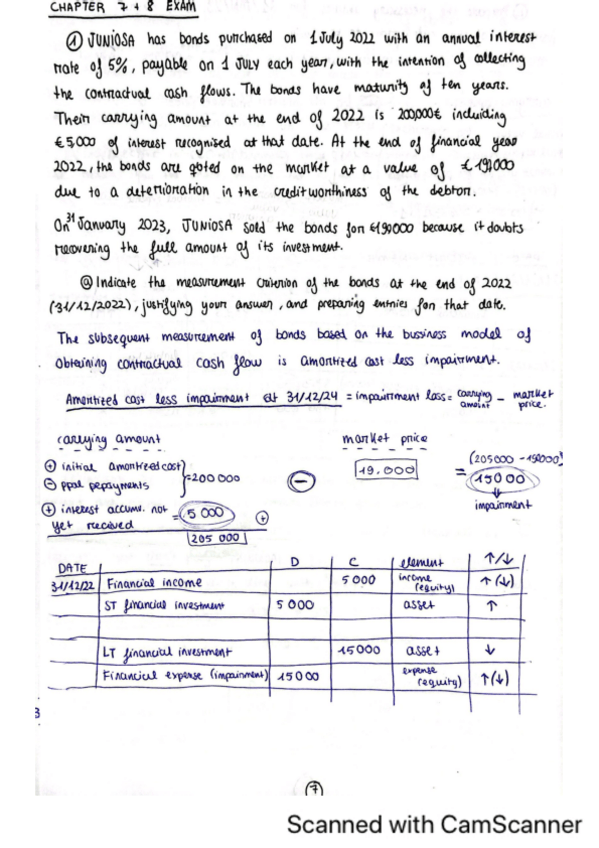 CHAPTER 7 + 8 EXAM
① JUNIOSA has bonds purchased on 1 July 2022 with an annual interest
rate of 5%, payable on 1 JULY each year, with the intention of collecting
the contractual cash flows. The bonds have maturity of ten years.
Their carrying amount at the end of 2022 is 200,000€ including
€5,000 of interest recognised at that date. At the end of financial year
2022, the bonds are quoted on the market at a value of
due to a deterioration in the creditworthiness of the debtor.
On 31 January 2023, JUNIOSA sold the bonds for €190000 because it doubts
recovering the full amount of its investment.
ⓐ Indicate the measurement criterion of the bonds at the end of 2022
(31/12/2022), justifying your answer, and preparing entries for that date.
The subsequent measurement of bonds based on the bussiness model of
obtaining contractual cash flow is amortized cost less impairment.
Amortized cost less impairment at 31/12/24 = impairment loss = carrying amount - market price.
carrying amount market price
⊕ initial amortized cost
⊖ ppal repayments = 200 000 ⊖ 19.000 = (205000 - 190000) 15000
⊕ interest accum. not yet received = 5 000 ⊕ impairment
205 000
DATE D C element ↑/↓
31/12/22 Financial income 5 000 income (equity) ↑(↓)
ST financial investment 5 000 asset ↑
LT financial investment 15000 asset ↓
Financial expense (impairment) 15000 expense (equity) ↑(↓)
3
7
Scanned with CamScanner